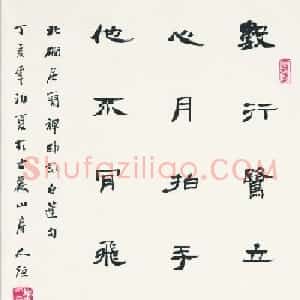 數行鷺立
心月拍手
他不肎飛
北磵居簡禪師詠白蓮句
丁亥年初夏於山房
Shufaziliao.com